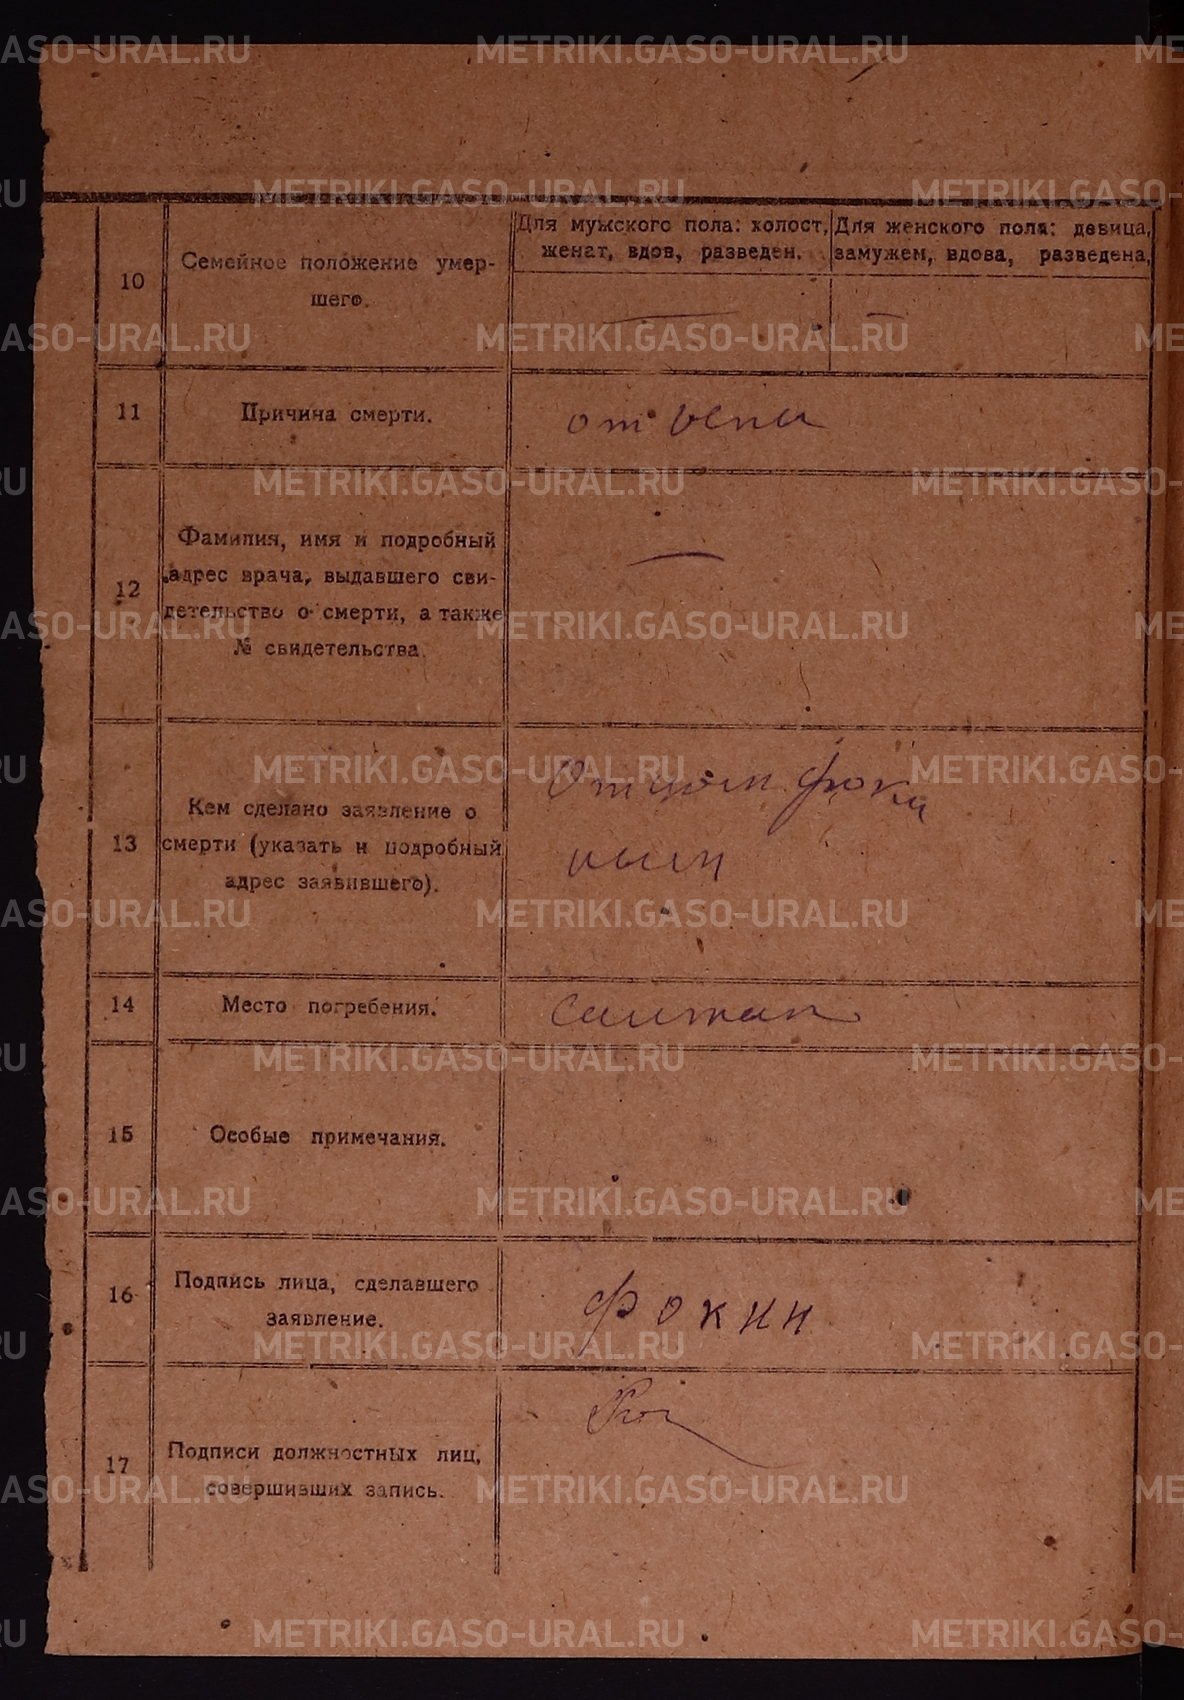 Для мужского пола: холост, женат, вдов, разведен.
Для женского пола: девица, замужем, вдова, разведена,
10
Семейное положение умер-
шего.
— —
11
Причина смерти.
от оспи
12
Фамилия, имя и подробный
адрес врача, выдавшего сви-
детельство о смерти, а также
№ свидетельства.
—
13
Кем сделано заявление о
смерти (указать и подробный
адрес заявившего).
Отцом Фоки
ным
14
Место погребения.
15
Особые примечания.
16
Подпись лица, сделавшего
заявление.
Фокин
17
Подписи должностных лиц,
совершивших запись.
METRIKI.GASO-URAL.RU